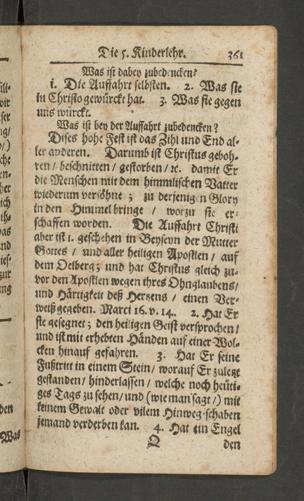 Die 5. Kinderlehr. 361
Was ist dabey zubedencken?
1. Die Auffahrt selbsten. 2. Was sie
in Christo gewürckt hat. 3. Was sie gegen
uns würckt.
Was ist bey der Auffahrt zubedencken?
Dises hohe Fest ist das Zihl und End al-
ler anderen. Darumb ist Christus geboh-
ren / beschnitten / gestorben / ꝛc. damit Er
die Menschen mit dem himmlischen Vatter
wiederum versöhne; zu derjenigen Glory
in den Himmel bringe / worzu sie er-
schaffen worden. Die Auffahrt Christi
aber ist 1. geschehen in Beyseyn der Mutter
Gottes / und aller heiligen Apostlen / auf
dem Oelberg; und hat Christus gleich zu-
vor den Apostlen wegen ihres Ohnglaubens /
und Härtigkeit deß Hertzens / einen Ver-
weiß gegeben. Marci 16. v. 14. 2. Hat Er
sie gesegnet; den heiligen Geist versprochen /
und ist mit erhebten Händen auf einer Wol-
cken hinauf gefahren. 3. Hat Er seine
Fußtritt in einem Stein / worauf Er zuletzt
gestanden / hinderlassen / welche noch heüti-
ges Tags zu sehen / und (wie man sagt /) mit
keinem Gewalt oder vilem Hinweg-schaben
jemand verderben kan. 4. Hat ein Engel
Q den
Was